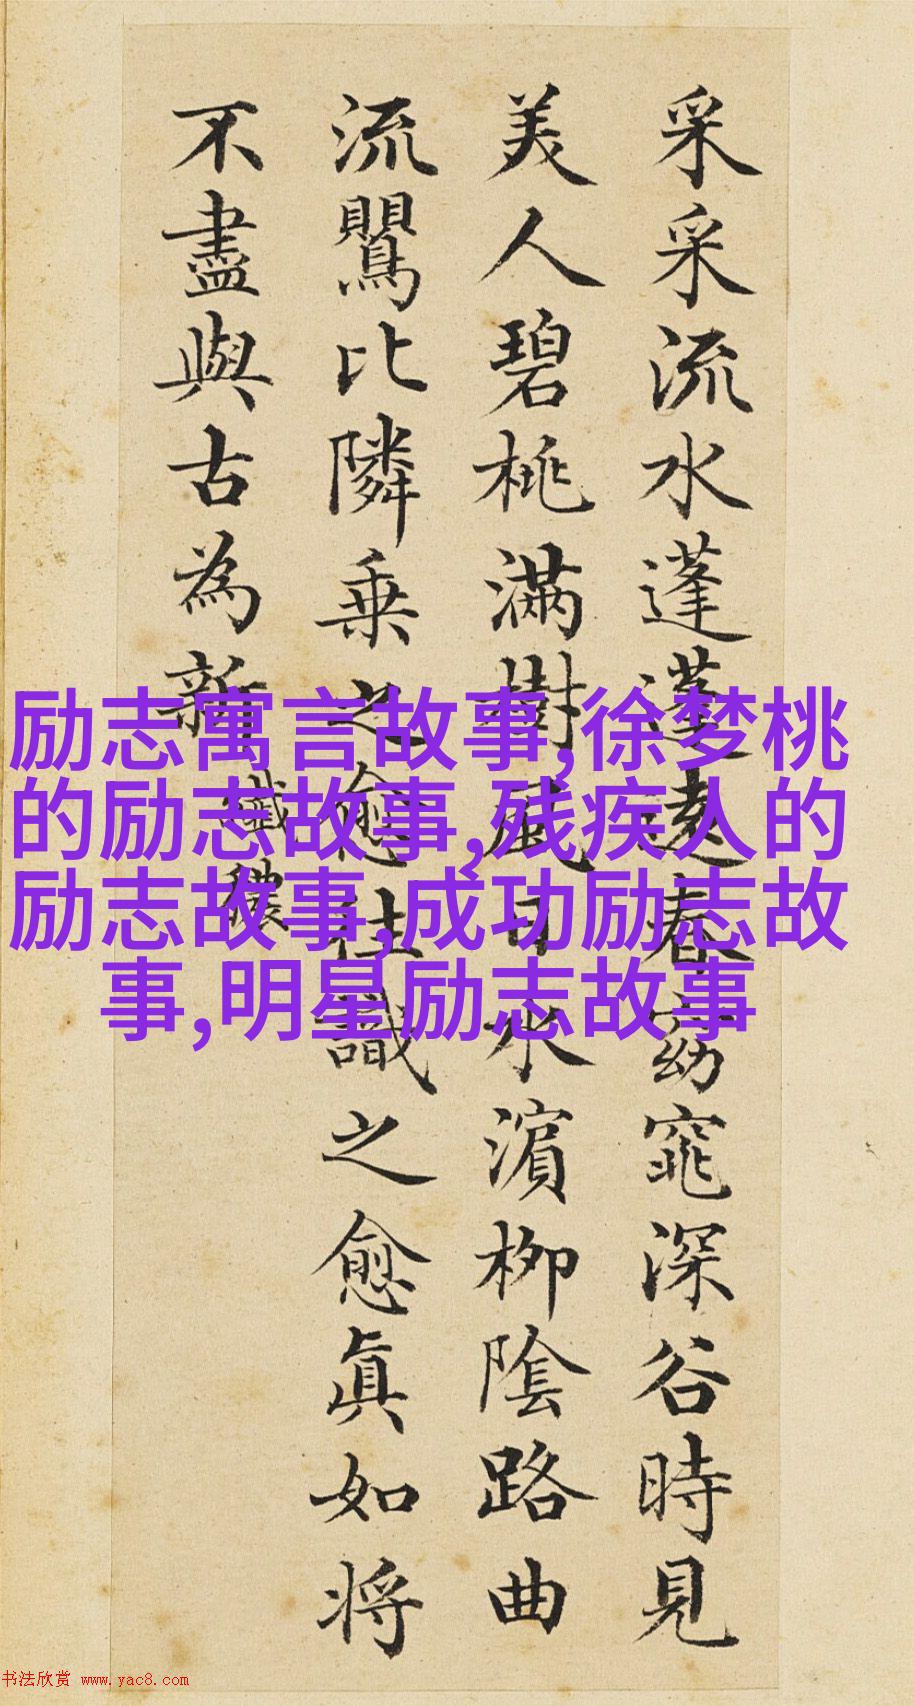 采采流水蓬蓬遠春窈窕深谷時見
美人碧桃滿樹風日水濵柳陰路曲
流鸎比隣乗之愈往識之愈眞如将
不盡與古為新
纎穠
励志寓言故事,徐梦桃
的励志故事,残疾人的
励志故事,成功励志故
事,明星励志故事
书法欣赏 www.yac8.com